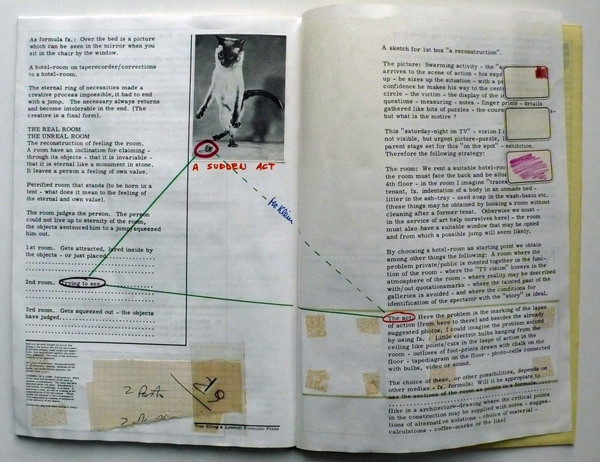 As formula fx.: Over the bed is a picture
which can be seen in the mirror when you
sit in the chair by the window.
A hotel-room on taperecorder/corrections
to a hotel-room.
The eternal ring of necessities made a
creative process impossible, it had to end
with a jump. The necessary always returns
and become intolerable in the end. (The
creative is a final form).
THE REAL ROOM
THE UNREAL ROOM
The reconstruction of feeling the room.
A room have an inclination for claiming -
through its objects - that it is invariable -
that it is eternal like a monument in stone.
It leaves a person a feeling of own value.
Petrified room that stands (to be born in a
tent - what does it mean to the feeling of
the eternal and own value).
The room judges the person. The person
could not live up to eternity of the room,
the objects sentenced him to a jump squeezed
him out.
1st room. Gets attracted, lured inside by
the objects - or just placed.
2nd room. Trying to see
3rd room. Gets squeezed out - the objects
have judged.
A SUDDEN ACT
2
2
A sketch for 1st box "a reconstruction".
The picture: Swarming activity - the
arrives to the scene of action - his
up - he sizes up the situation - with a
confidence he makes his way to the
circle - the victim - the display of the
questions - measuring - notes - finger prints - details
gathered like bits of puzzles - the
but what is the motive ?
This "saturday-night on TV" - vision I
not visible, but urgent picture-puzzle,
parent stage set for this "on the spot" - exhibition.
Therefore the following strategy:
The room: We rent a suitable hotel-room
the room must face the back and be
4th floor - in the room I imagine
tenant, fx. indentation of a body in an unmade bed -
litter in the ash-tray - used soap in the wash-basin etc.
(these things may be obtained by booking a room without
cleaning after a former tenat. Otherwise we must -
in the service of art help ourselves here) - the room
must also have a suitable window that may be opened
and from which a possible jump will seem likely.
By choosing a hotel-room as starting point we obtain
among other things the following: A room where the
problem private/public is mented together in the func-
tion of the room - where the "TV vision" hovers in the
atmosphere of the room - where reality may be described
with/out quotationsmarks - where the tainted past of the
galleries is avoided - and where the conditions for
identification of the spectator with the "story" is ideal.
The act: Here the problem is the marking of the lapse
of action (from here to there) and besides the already
suggested photos, I could imagine the problem solved
by using fx. : Little electric bulbs hanging from the
ceiling like points/cuts in the lapse of action in the
room - outlines of foot-prints drawn with chalk on the
floor - tapediagram on the floor - photo-cells connected
with bulbs, video or sound.
The choice of these, or other possibilities, depends on
other medias - fx. formula: Will it be appropriate to
use the sections of the room as points in a formula
(like in a architecture-drawing where the critical points
in the construction may be supplied with notes - sugges-
tions of alternative solutions - choice of material -
calculations - coffee-marks or the like)